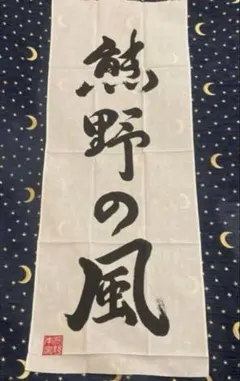 熊野の風